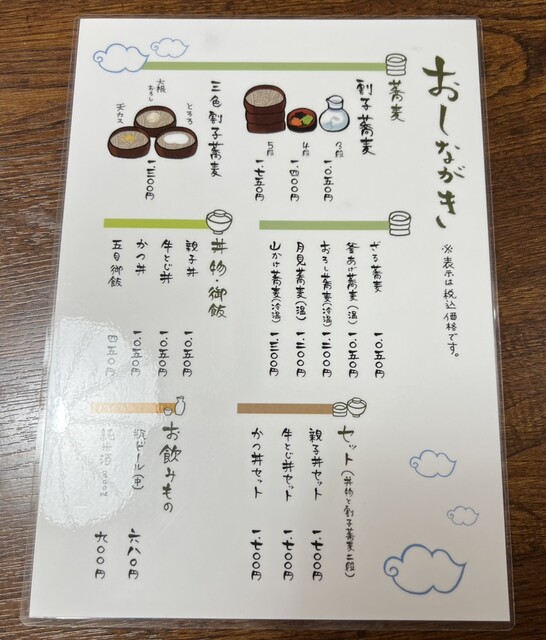 おしながき
※表示は税込価格です。
蕎麦
割子蕎麦
3段 一、〇五〇円
4段 一、四〇〇円
5段 一、七五〇円
三色割子蕎麦
とろろ
大根おろし
天カス
一、三〇〇円
ざる蕎麦 一、〇五〇円
釜あげ蕎麦(温) 一、〇五〇円
おろし蕎麦(冷温) 一、二〇〇円
月見蕎麦(温) 一、二〇〇円
山かけ蕎麦(冷温) 一、三〇〇円
丼物・御飯
親子丼 一、〇五〇円
牛とじ丼 一、〇五〇円
かつ丼 一、〇五〇円
五目御飯 四五〇円
セット(丼物と割子蕎麦二段)
親子丼セット 一、七〇〇円
牛とじ丼セット 一、七〇〇円
かつ丼セット 一、七〇〇円
お飲みもの
瓶ビール(中) 六八〇円
純米酒 300ml 九〇〇円